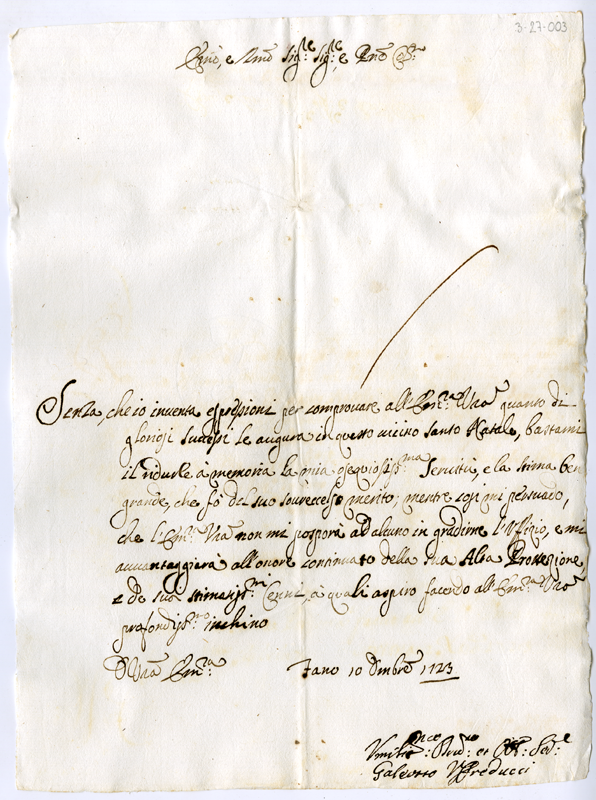 3-27-003
Em̃o, e Rmõ Sig.re Sig.re, e Pnẽ Col.mo
Senza, che io inventa espressioni per comprovare all'Em.za Vrã quanto di
gloriosi successi le augura in questo vicino Santo Natale, bastami
il ridurle à memoria la mia ossequiosiss.ma Servitù, e la stima ben
grande, che fò del suo sovreccelso merito; mentre così mi persuado,
che l'Em.za Vrã non mi posporà ad alcuno in gradirne l'Uffizio, e mi
avvantaggierà all'onore continuato della sua Alta Protezzione,
e de suoi stimatiss.mi Cenni, à quali aspiro facendo all'Em.za Vrã
profondiss.mo inchino
D Vrã Em.za
Fano 10 Dmbrẽ 1723
Umiliss.o Dev.mo et Obl. Ser.e
Galeotto Uffreducci